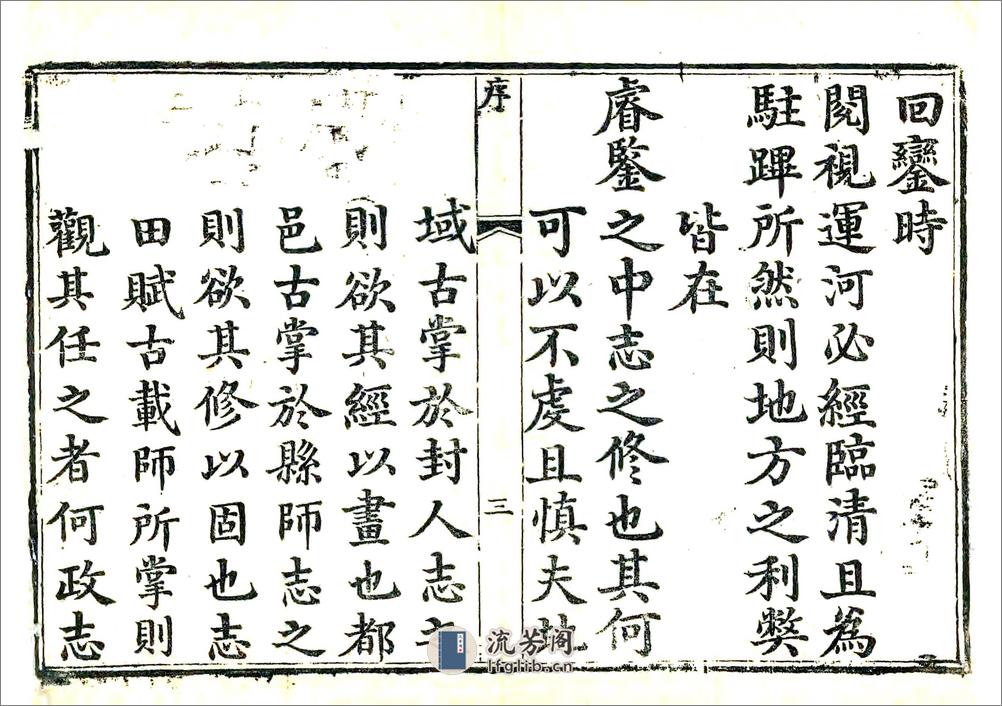 回鑾時
閱視運河必經臨清且為
駐蹕所然則地方之利獘
皆在
睿鑒之中志之修也其何
可以不虔且慎夫地
序
三
域古掌於封人志之
則欲其經以畫也都
邑古掌於縣師志之
則欲其修以固也志
田賦古載師所掌則
觀其任之者何政志
流芳阁
lfglib.cn